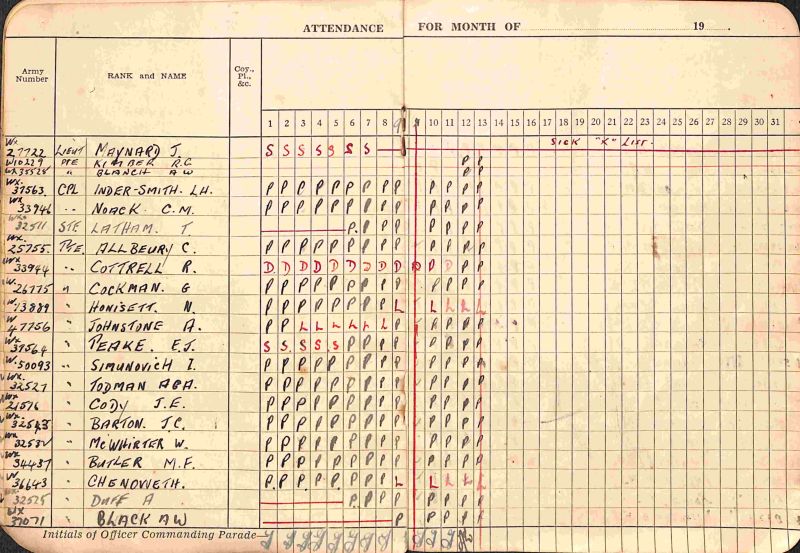 ATTENDANCE FOR MONTH OF 19
Army Number RANK and NAME Coy., Pl., &c. 1 2 3 4 5 6 7 8 9 10 11 12 13 14 15 16 17 18 19 20 21 22 23 24 25 26 27 28 29 30 31
WX 27722 LIEUT MAYNARD J. S S S S S S S SICK "X" LIST.
W10229 PTE KIMBER R.C P P
WX35528 " BLANCH AW P P
WX 37563 CPL INDER-SMITH. LH. P P P P P P P P P P P P P
WX 33946 " NOACK. C.M. P P P P P P P P P P P P P
32511 STE LATHAM. T P. P P P P P P P
WX. 25755. PTE. ALLBEURY C. P P P P P P P P P P P P P
WX. 33944 " COTTRELL R. D D D D D D D D D D D D P P
WX. 26775 " COCKMAN. G P P P P P P P P P P P P P
W 13889 " HONISETT. N. P P P P P P P P L L L L L
W 47756 " JOHNSTONE A. P P L L L L L L P P P P P
WX 37564 " PEAKE. E.J. S S. S S S P P P P P P P P
W. 50093 " SIMUNOVICH I. P P P P P P P P P P P P P
WX. 32527 " TODMAN AGA. P P P P P P P P P P P P P
WX 21576 " CODY J.E. P P P P P P P P P P P P P
WX 32543 " BARTON. J.C. P P P P P P P P P P P P P
WX " McWHIRTER W. P P P P P P P P P P P P P
WX 34437 " BUTLER M.F. P P P P P P P P P P P P P
W 36643 " CHENOWETH. P. P. P P. P P P P L L L L L
32525 " DUFF A P P P P P P P P
WX 37071 " BLACK AW P P P P P
Initials of Officer Commanding Parade—